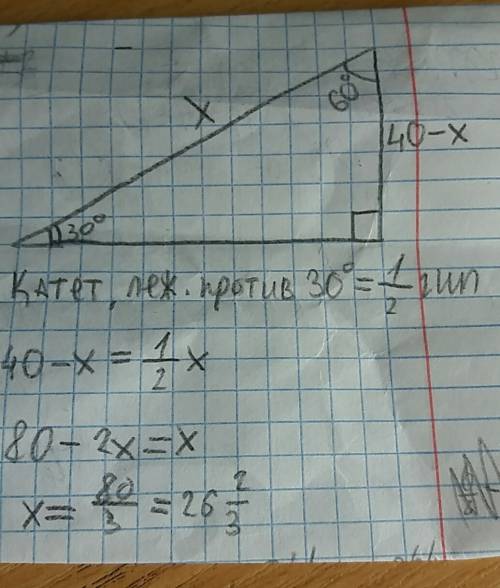 60°
X
40-x
30°
Катет, леж. против 30° = 1/2 гип
40-x = 1/2 x
80-2x=x
x= 80/3 = 26 2/3